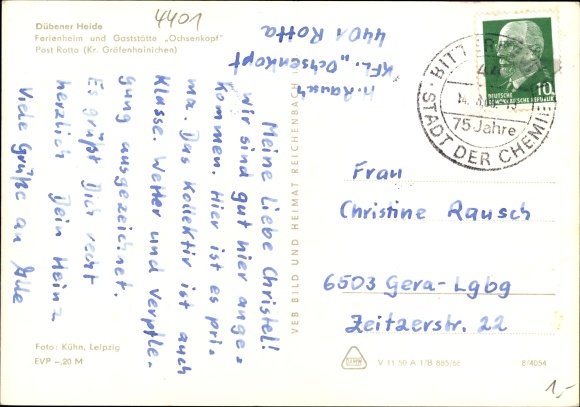 4401
Dübener Heide
Ferienheim und Gaststätte „Ochsenkopf"
Post Rotta (Kr. Gräfenhainichen)
H. Rausch
KFL. „Ochsenkopf
4401 Rotta
Meine liebe Christel!
Wir sind gut hier ange-
kommen. Hier ist es pri-
ma. Das Kollektiv ist auch
Klasse. Wetter und Verpfle-
gung ausgezeichnet.
Es grüßt Dich recht
herzlich Dein Heinz
Viele Grüße an Alle
Foto: Kühn, Leipzig
EVP -,20 M
VEB BILD UND HEIMAT REICHENBACH i.
DEUTSCHE
DEMOKRATISCHE REPUBLIK
10
75 Jahre
STADT DER CHEMIE
Frau
Christine Rausch
6503 Gera-Lgbg
Zeitzerstr. 22
V 11 50 A 1/B 885/66
8/4054
1,-